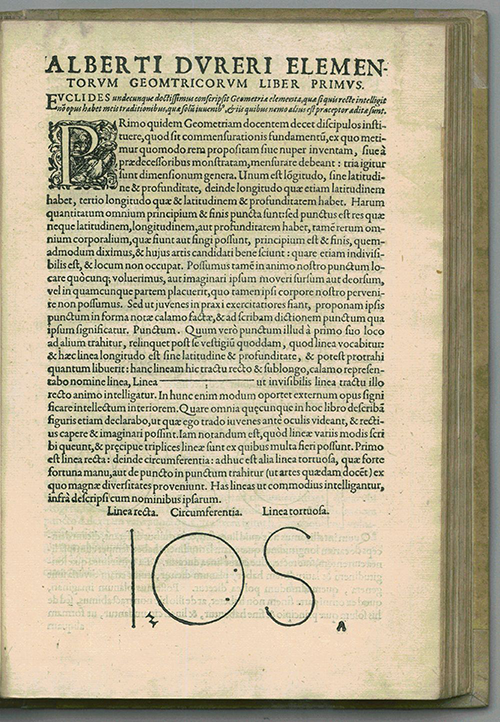 ALBERTI DVRERI ELEMEN-
TORVM GEOMTRICORVM LIBER PRIMVS.
EVCLIDES undecunque doctissimus conscripsit Geometriæ elementa, quæ si quis recte intelligit
nō opus habet meis traditionibus, quæ solū iuvenib⁹, & iis quibus nemo alius est præceptor aditæ sunt.
PRimo quidem Geometriam docentem decet discipulos insti-
tuere, quod sit commensurationis fundamentū, ex quo meti-
mur quomodo rem propositam siue nuper inventam, siue à
prædecessoribus monstratam, mensurare debeant: tria igitur
sunt dimensionum genera. Unum est lōgitudo, sine latitudi-
ne & profunditate, deinde longitudo quæ etiam latitudinem
habet, tertio longitudo quæ & latitudinem & profunditatem habet. Harum
quantitatum omnium principium & finis puncta sunt: sed punctus est res quæ
neque latitudinem, longitudinem, aut profunditatem habet, tamē rerum om
nium corporalium, quæ fiunt aut fingi possunt, principium est & finis, quem-
admodum diximus, & hujus artis candidati bene sciunt: quare etiam indivisi-
bilis est, & locum non occupat. Possumus tamē in animo nostro punctum lo-
care quòcunq; voluerimus, aut imaginari ipsum moveri sursum aut deorsum,
vel in quamcunque partem placuerit, quo tamen ipsi corpore nostro perveni-
re non possumus. Sed ut juvenes in praxi exercitatiores fiant, proponam ipsis
punctum in forma notæ calamo factæ, & ad scribam dictionem punctum qua
ipsum significatur. Punctum. Quum verò punctum illud à primo suo loco
ad alium trahitur, relinquet post se vestigiū quoddam, quod linea vocabitur
& hæc linea longitudo est sine latitudine & profunditate, & potest protrahi
quantum libuerit: hanc lineam hic tractu recto & sublongo, calamo represen-
tabo nomine linea, Linea ut invisibilis linea tractu illo
recto animo intelligatur. In hunc enim modum oportet externum opus signi
ficare intellectum interiorem. Quare omnia quęcunque in hoc libro describā
figuris etiam declarabo, ut quæ ego trado iuvenes ante oculis videant, & recti-
us capere & imaginari possint. Iam notandum est, quòd lineæ variis modis scri
bi queunt, & pręcipue triplices lineæ sunt ex quibus multa fieri possunt. Primo
est linea recta: deinde circumferentia: adhuc est alia linea tortuosa, quæ forte
fortuna manu, aut de puncto in punctum trahitur (ut artes quædam docēt) ex
quo magnæ diversitates proveniunt. Has lineas ut commodius intelligantur,
infrà descripsi cum nominibus ipsarum.
Linea recta. Circumferentia. Linea tortuosa.